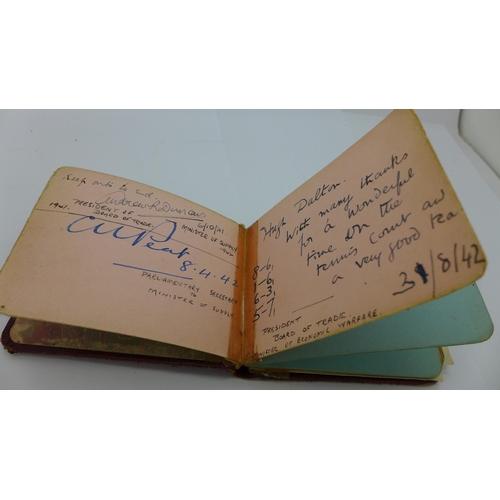 Keep onto to end
Andrew R Duncan
6/10/41
1941. PRESIDENT OF
BOARD OF TRADE
MINISTER OF SUPPLY
8.4.42
PARLIAMENTARY SECRETARY
TO
MINISTER OF SUPPLY
Hugh Dalton.
With many thanks
for a wonderful
time on the
tennis court and
a very good tea
31/8/42
8-6,
6-3,
5-7,
PRESIDENT
BOARD OF TRADE
MINISTER OF ECONOMIC WARFARE.